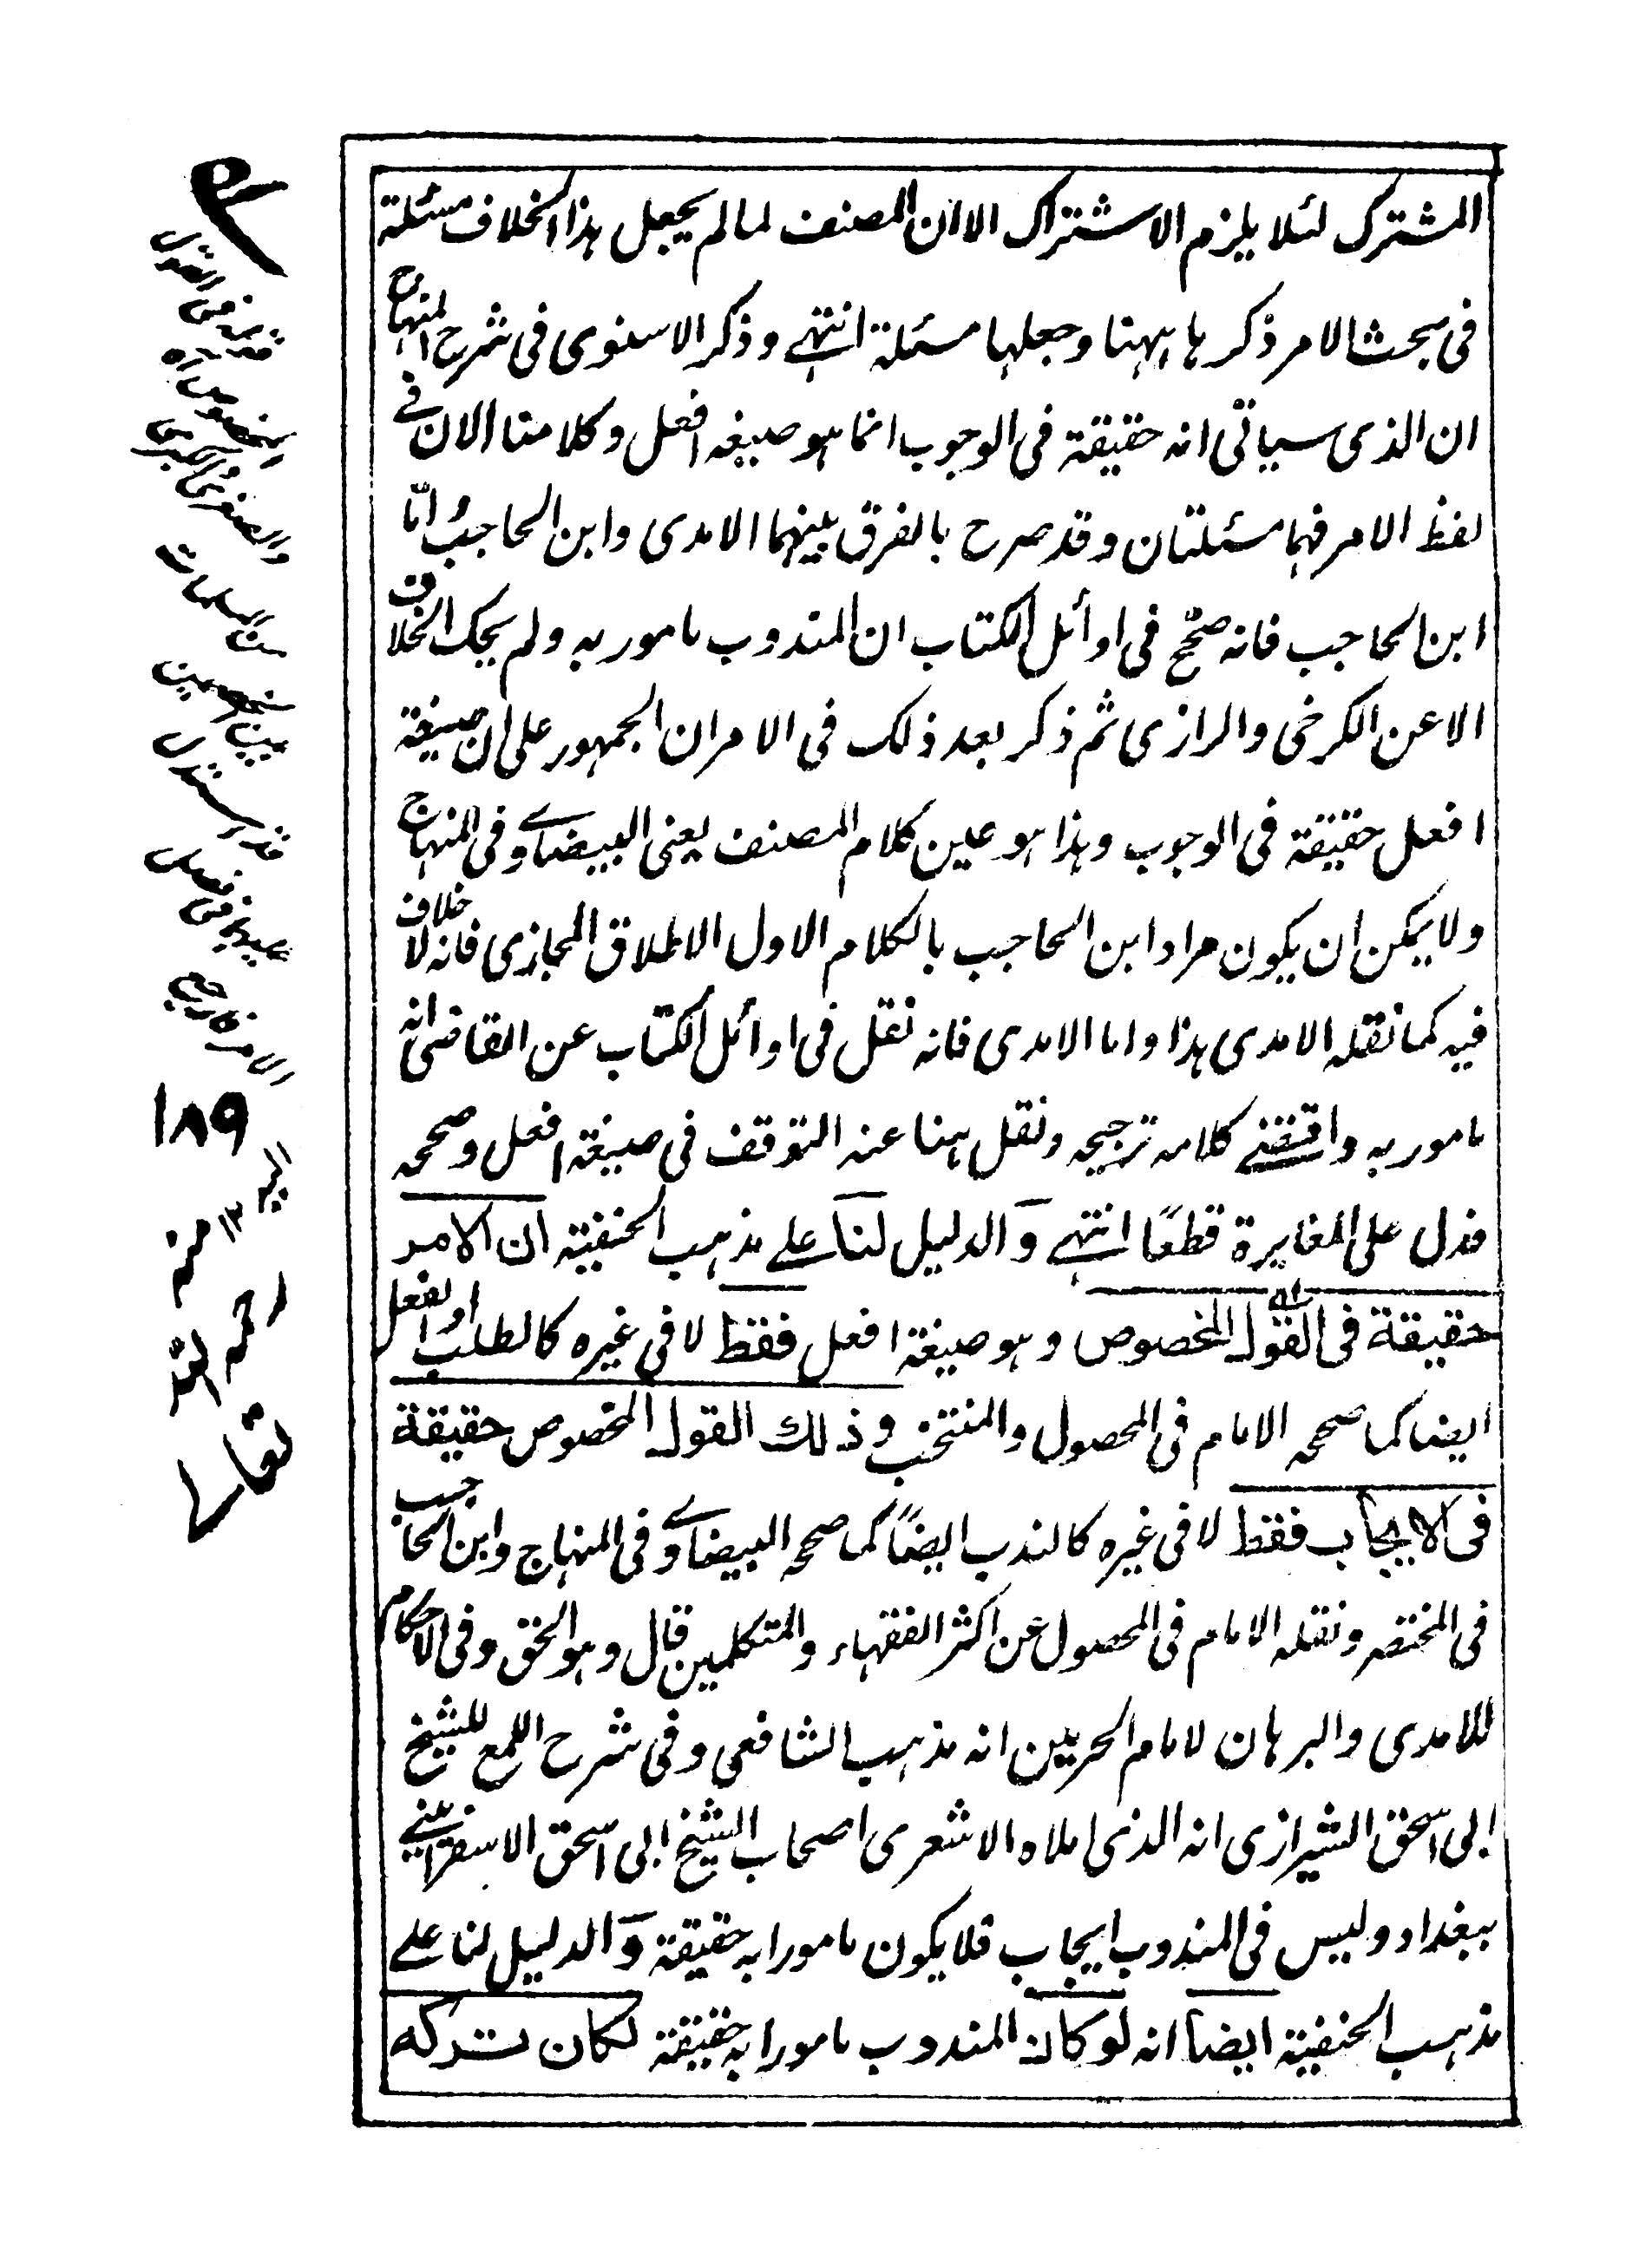 المشترك لئلا يلزم الاشتراك الا ان المصنف لما لم يجعل هذا الخلاف مسئلة
فى بحث الامر ذكرها ههنا وجعلها مسئلة انتهے وذكر الاسنوى فى شرح المنهاج
ان الذى سياتى انه حقيقة فى الوجوب انما هو صيغه افعل وكلامنا الان فے
لفظ الامر فهما مسئلتان وقد صرح بالفرق بينهما الامدى وابن الحاجب امّا
ابن الحاجب فانه صحّح فى اوائل الكتاب ان المندوب مامور به ولم يحك الخلاف
الا عن الكرخى والرازى ثم ذكر بعد ذلك فى الامر ان الجمهور على ان صيغة
افعل حقيقة فى الوجوب وهذا هو عين كلام المصنف يعنى البيضاوے فى المنهاج
ولا يمكن ان يكون مراد ابن الحاجب بالكلام الاول الاطلاق المجازى فانه لا خلاف
فيه كما نقله الامدى هذا واما الامدى فانه نقل فى اوائل الكتاب عن القاضى انه
مامور به واقتضے كلامه ترجيحه ونقل هنا عنه التوقف فى صيغة افعل وصححه
فدل على المغايرة قطعًا انتهے وَالدليل لنا علے مذهب الحنفية ان الامر
حقيقة فى القول المخصوص وهو صيغة افعل فقط لا فى غيره كالطلب او الفعل
ايضا كما صححه الامام فى المحصول والمنتخب وذلك القول المخصوص حقيقة
فى الايجاب فقط لا فى غيره كالندب ايضًا كما صححه البيضاوے فى المنهاج وابن الحاجب
فى المختصر ونقله الامام فى المحصول عن اكثر الفقهاء والمتكلمين قال وهو الحق وفى الاحكام
للامدى والبرهان لامام الحرمين انه مذهب الشافعى وفى شرح اللمع للشيخ
ابى اسحق الشيرازى انه الذى املاه الاشعرى اصحاب الشيخ ابى اسحق الاسفرائينے
ببغداد وليس فى المندوب ايجاب فلا يكون مامورا به حقيقة وَالدليل لنا علے
مذهب الحنفية ايضا انه لو كان المندوب مامورا به حقيقة لكان تركه
١٨٩
منه
رحمه الله
تعالے